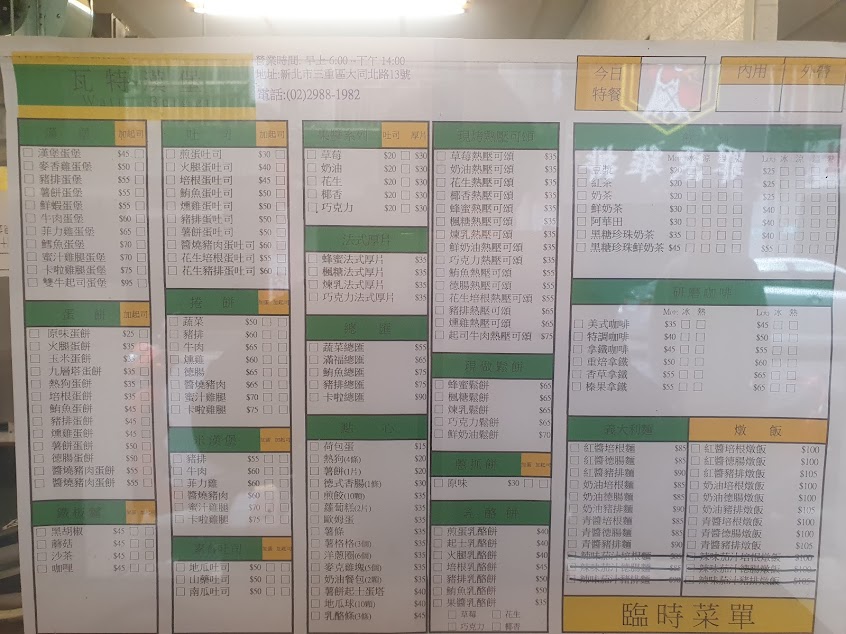 瓦特漢堡
營業時間: 早上 6:00 - 下午 14:00
地址:新北市三重區大同北路13號
電話:(02)2988-1982
今日
特餐
內用
外帶
漢堡 加起司
漢堡蛋堡 $45
麥香雞蛋堡 $50
豬排蛋堡 $55
薯餅蛋堡 $55
鮮蝦蛋堡 $55
牛肉蛋堡 $60
菲力雞蛋堡 $65
鱈魚蛋堡 $70
蜜汁雞腿蛋堡 $70
卡啦雞腿蛋堡 $75
雙牛起司蛋堡 $95
蛋餅 加起司
原味蛋餅 $25
火腿蛋餅 $35
玉米蛋餅 $35
九層塔蛋餅 $35
熱狗蛋餅 $35
培根蛋餅 $35
鮪魚蛋餅 $45
豬排蛋餅 $45
燻雞蛋餅 $45
薯餅蛋餅 $50
德腸蛋餅 $50
醬燒豬肉蛋餅 $55
醬燒豬肉蛋餅 $55
鐵板麵
黑胡椒 $45
蘑菇 $45
沙茶 $45
咖哩 $45
吐司 加起司
煎蛋吐司 $30
火腿蛋吐司 $40
培根蛋吐司 $45
鮪魚蛋吐司 $50
燻雞蛋吐司 $50
豬排蛋吐司 $50
薯餅蛋吐司 $50
醬燒豬肉蛋吐司 $60
花生培根蛋吐司 $55
花生豬排蛋吐司 $60
捲餅
蔬菜 $50
豬排 $60
牛肉 $65
燻雞 $60
德腸 $65
醬燒豬肉 $65
蜜汁雞腿 $70
卡啦雞腿 $75
豬排 $55
牛肉 $60
菲力雞 $60
醬燒豬肉 $60
蜜汁雞腿 $70
卡啦雞腿 $75
地瓜吐司 $50
山藥吐司 $50
南瓜吐司 $50
吐司 厚片
草莓 $20 $30
奶油 $20 $30
花生 $20 $30
椰香 $20 $30
巧克力 $20 $30
法式厚片
蜂蜜法式厚片 $35
楓糖法式厚片 $35
煉乳法式厚片 $35
巧克力法式厚片 $35
總匯
蔬菜總匯 $55
滿福總匯 $65
鮪魚總匯 $75
豬排總匯 $75
卡啦總匯 $90
點心
荷包蛋 $15
熱狗(4條) $20
薯餅(1片) $20
德式香腸(1條) $30
煎餃(10顆) $35
蘿蔔糕(2片) $35
歐姆蛋 $35
薯條 $35
薯格格(3個) $35
洋蔥圈(6個) $35
麥克雞塊(5個) $35
奶油餐包(2顆) $35
薯餅起士蛋塔 $40
地瓜球(10顆) $40
乳酪條(3條) $45
現烤熱壓可頌
草莓熱壓可頌 $35
奶油熱壓可頌 $35
花生熱壓可頌 $35
椰香熱壓可頌 $35
蜂蜜熱壓可頌 $35
楓糖熱壓可頌 $35
煉乳熱壓可頌 $35
鮮奶油熱壓可頌 $35
巧克力熱壓可頌 $35
鮪魚熱壓可頌 $55
德腸熱壓可頌 $55
花生培根熱壓可頌 $55
豬排熱壓可頌 $55
燻雞熱壓可頌 $55
起司牛肉熱壓可頌 $75
現做鬆餅
蜂蜜鬆餅 $65
楓糖鬆餅 $65
煉乳鬆餅 $65
巧克力鬆餅 $65
鮮奶油鬆餅 $70
蔥抓餅
原味 $30
乳酪餅
煎蛋乳酪餅 $40
起士乳酪餅 $40
火腿乳酪餅 $40
培根乳酪餅 $45
豬排乳酪餅 $50
鮪魚乳酪餅 $50
果醬乳酪餅 $35
草莓 花生
巧克力 椰香
豆漿 $20 $25
紅茶 $20 $25
奶茶 $20 $25
鮮奶茶 $30 $40
阿華田 $30 $40
黑糖珍珠奶茶 $35 $40
黑糖珍珠鮮奶茶 $45 $55
研磨咖啡
美式咖啡 $35 $45
特調咖啡 $40 $50
拿鐵咖啡 $45 $55
重焙拿鐵 $50 $60
香草拿鐵 $55 $65
榛果拿鐵 $55 $65
義大利麵
紅醬培根麵 $85
紅醬德腸麵 $85
紅醬豬排麵 $90
奶油培根麵 $85
奶油德腸麵 $85
奶油豬排麵 $90
青醬培根麵 $85
青醬德腸麵 $85
青醬豬排麵 $90
燉飯
紅醬培根燉飯 $100
紅醬德腸燉飯 $100
紅醬豬排燉飯 $105
奶油培根燉飯 $100
奶油德腸燉飯 $100
奶油豬排燉飯 $105
青醬培根燉飯 $100
青醬德腸燉飯 $100
青醬豬排燉飯 $105
臨時菜單